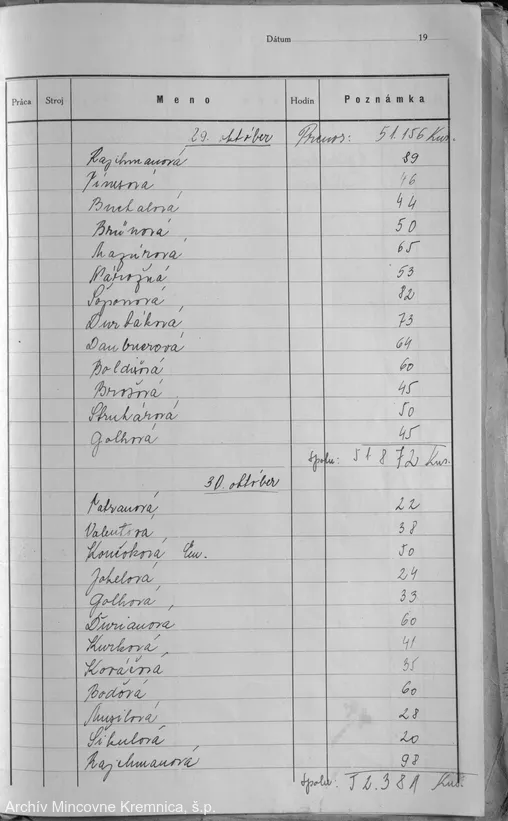 Dátum 19
Práca Stroj Meno Hodín Poznámka
29. október Prenos: 51.156 Kus.
Rajchmanová 89
Vinesová 46
Buchalová 44
Brünová 50
Mazúrová 65
Nárožná 53
Šoponová 82
Durbáková 73
Daubnerová 64
Boldišová 60
Brošová 45
Struhárová 50
Golhová 45
Spolu: 51 872 Kus.
30. október
Patvanová 22
Valentová 38
Končoková Em. 50
Johelová 24
Golhová 33
Ďurianová 60
Kurková 41
Kováčová 35
Bodová 60
Musilová 28
Sikulová 20
Rajchmanová 98
Spolu: 52.381 Kus.
Archív Mincovne Kremnica, š.p.